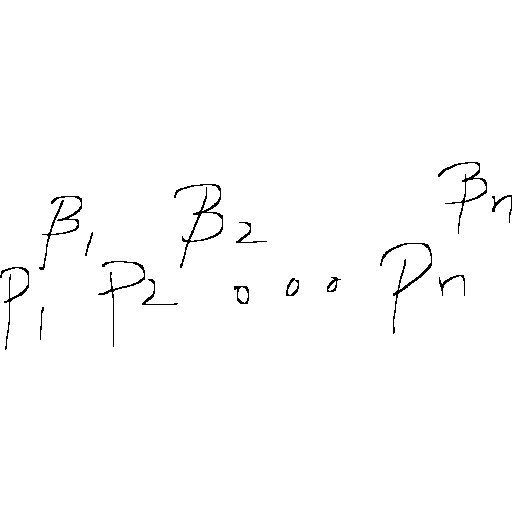 p₁^β₁ p₂^β₂ ∘ ∘ ∘ pₙ^βₙ